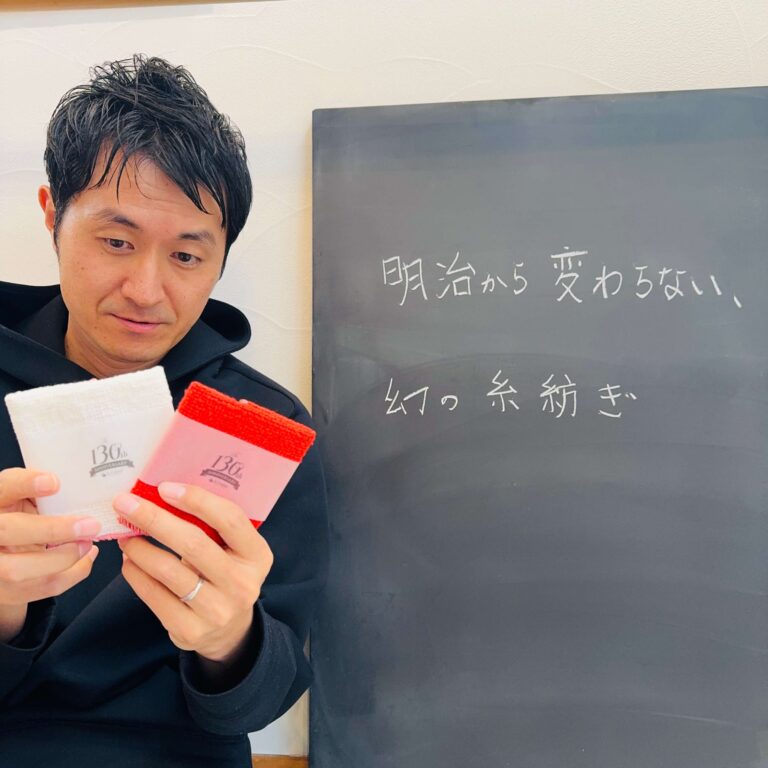 明治から変わらない、
幻の糸紡ぎ
130th
ANNIVERSARY
130th
ANNIVERSARY